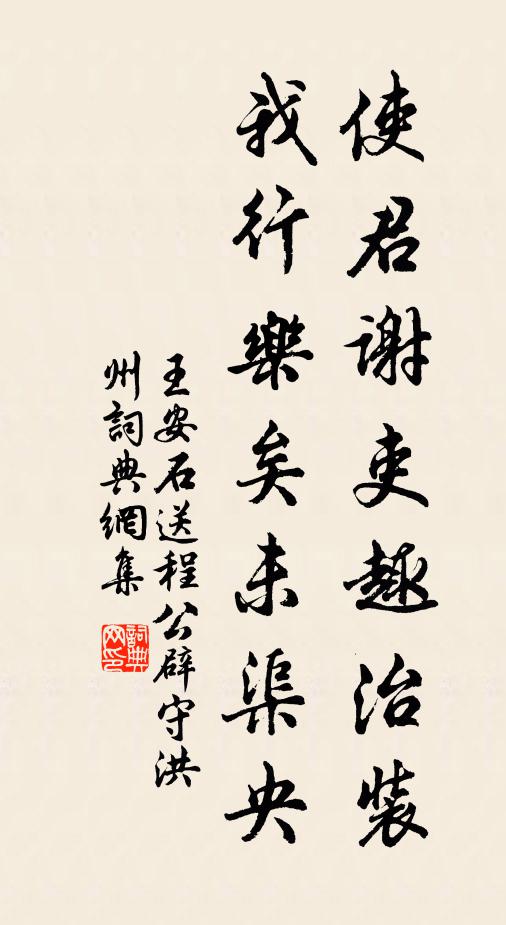 使君謝吏趣治裝
我行樂矣未渠央
王安石送程公辟守洪
州詞典網集
詞典
网印